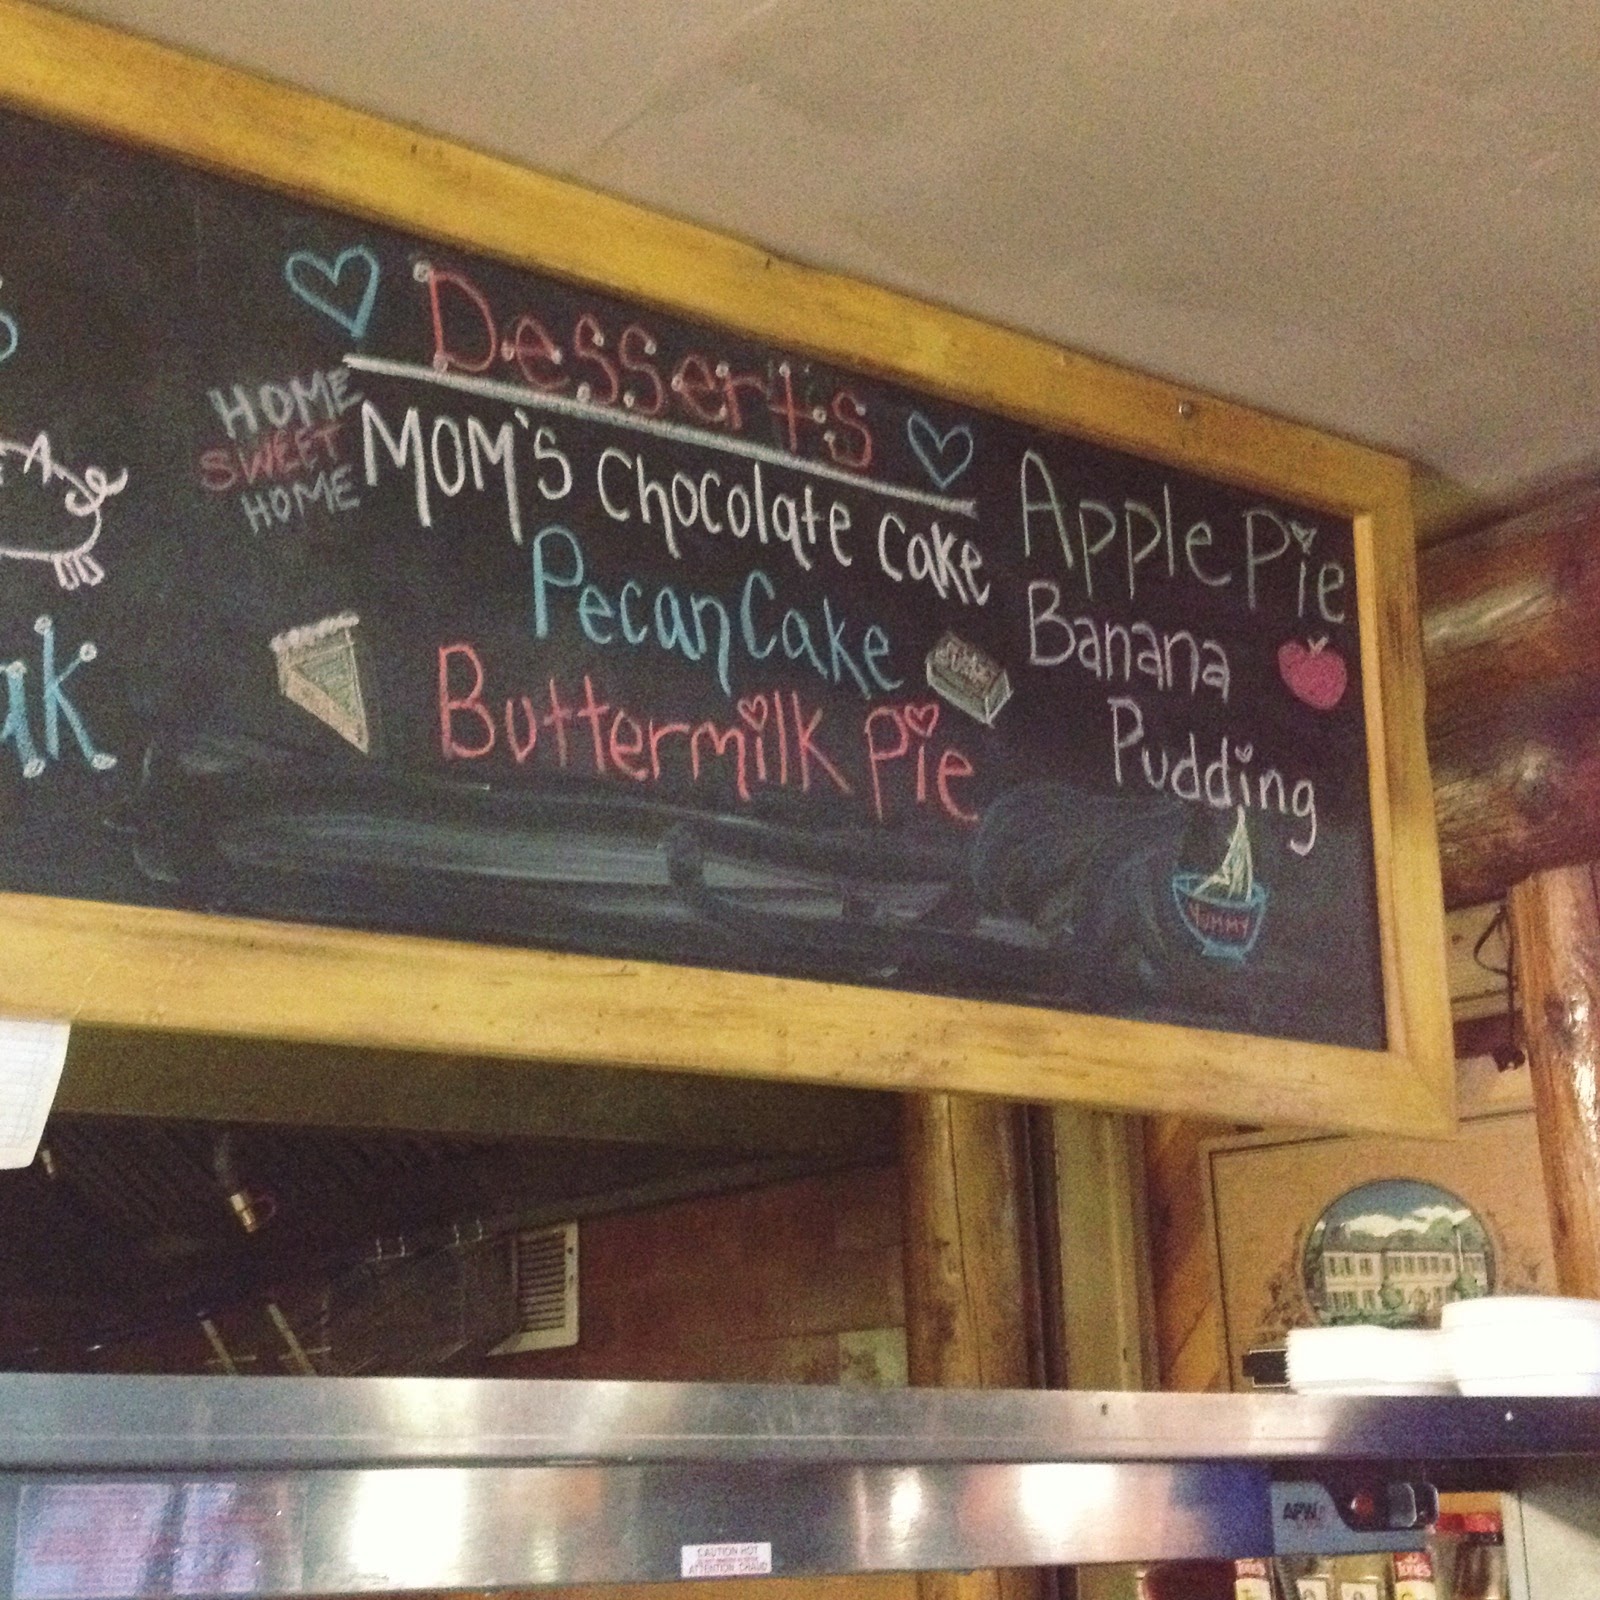 Desserts
HOME
SWEET
HOME
MOM'S Chocolate Cake
Pecan Cake
Buttermilk Pie
Apple Pie
Banana
Pudding
YUMMY
ak
APW
CAUTION HOT
ATTENTION CHAUD
Tone's
Tone's